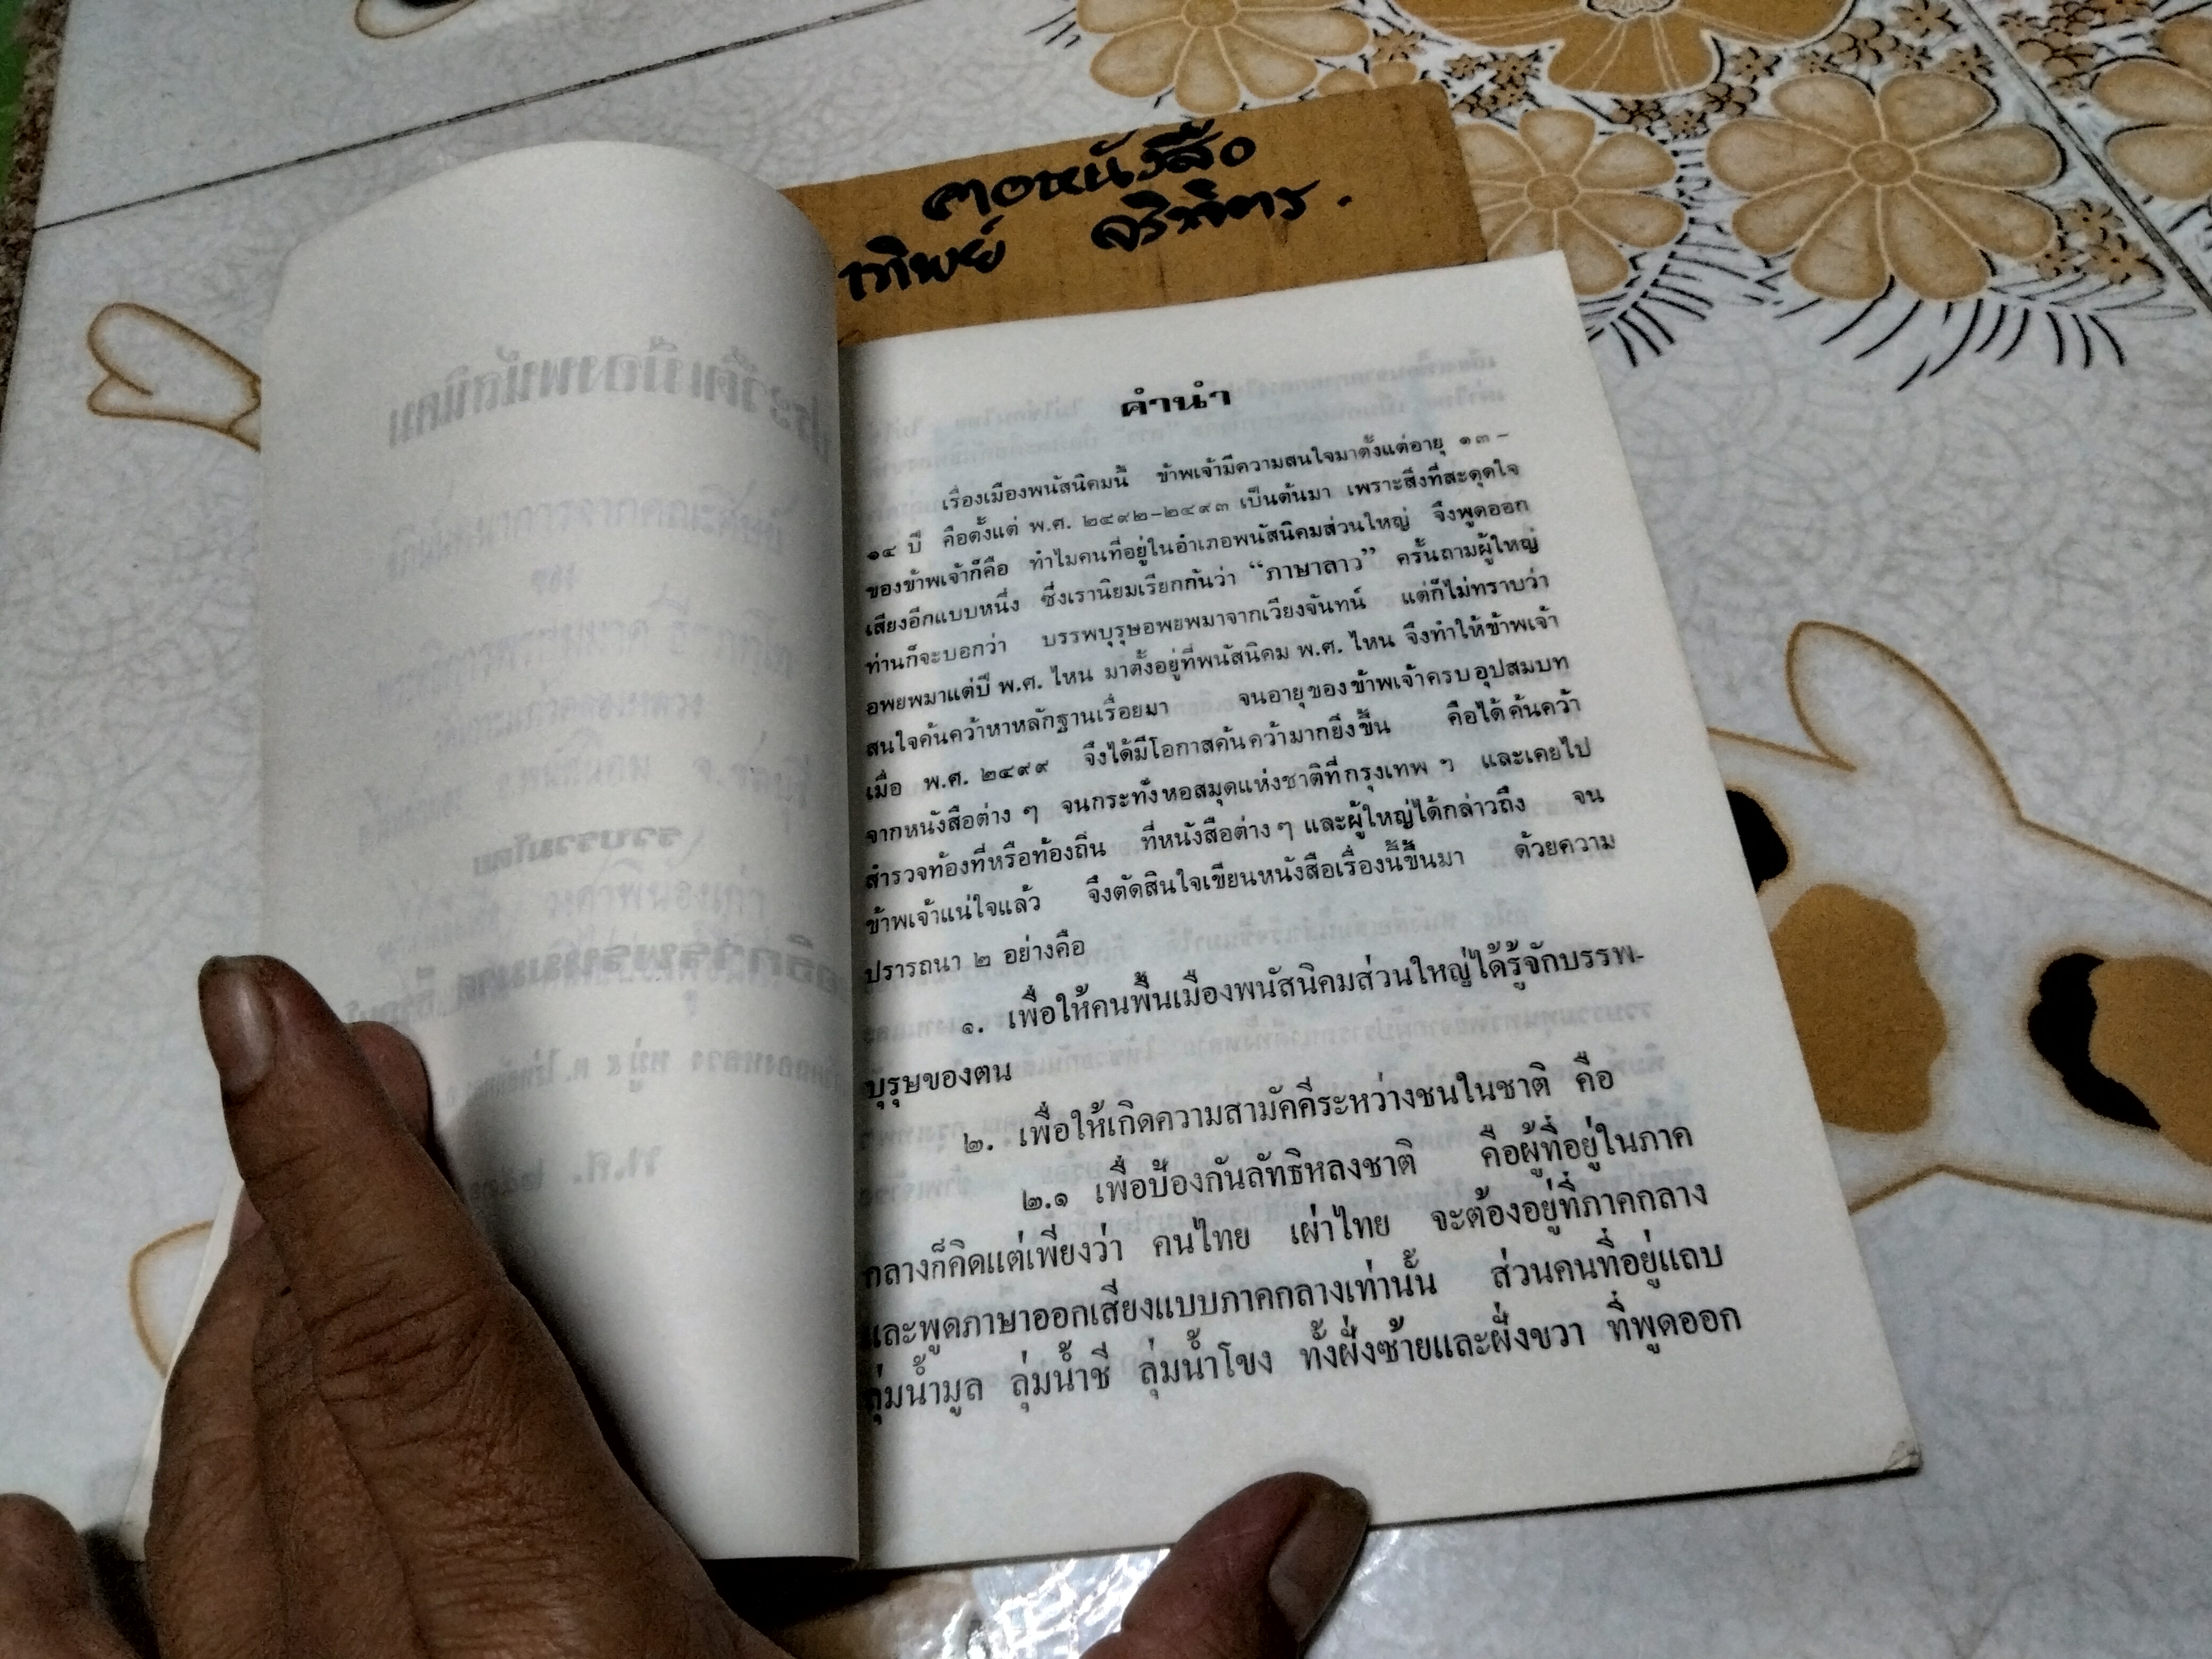 คอหนังสือ
ทิพย์ จริพิตร.
คำนำ
เรื่องเมืองพนัสนิคมนี้ ข้าพเจ้ามีความสนใจมาตั้งแต่อายุ ๑๓–
๑๔ ปี คือตั้งแต่ พ.ศ. ๒๔๙๒–๒๔๙๓ เป็นต้นมา เพราะสิ่งที่สะดุดใจ
ของข้าพเจ้าก็คือ ทำไมคนที่อยู่ในอำเภอพนัสนิคมส่วนใหญ่ จึงพูดออก
เสียงอีกแบบหนึ่ง ซึ่งเรานิยมเรียกกันว่า “ภาษาลาว” ครั้นถามผู้ใหญ่
ท่านก็จะบอกว่า บรรพบุรุษอพยพมาจากเวียงจันทน์ แต่ก็ไม่ทราบว่า
อพยพมาแต่ปี พ.ศ. ไหน มาตั้งอยู่ที่พนัสนิคม พ.ศ. ไหน จึงทำให้ข้าพเจ้า
สนใจค้นคว้าหาหลักฐานเรื่อยมา จนอายุของข้าพเจ้าครบอุปสมบท
เมื่อ พ.ศ. ๒๔๙๙ จึงได้มีโอกาสค้นคว้ามากยิ่งขึ้น คือได้ค้นคว้า
จากหนังสือต่าง ๆ จนกระทั่งหอสมุดแห่งชาติที่กรุงเทพ ฯ และเคยไป
สำรวจท้องที่หรือท้องถิ่น ที่หนังสือต่าง ๆ และผู้ใหญ่ได้กล่าวถึง จน
ข้าพเจ้าแน่ใจแล้ว จึงตัดสินใจเขียนหนังสือเรื่องนี้ขึ้นมา ด้วยความ
ปรารถนา ๒ อย่างคือ
๑. เพื่อให้คนพื้นเมืองพนัสนิคมส่วนใหญ่ได้รู้จักบรรพ-
บุรุษของตน
๒. เพื่อให้เกิดความสามัคคีระหว่างชนในชาติ คือ
๒.๑ เพื่อป้องกันลัทธิหลงชาติ คือผู้ที่อยู่ในภาค
กลางก็คิดแต่เพียงว่า คนไทย เผ่าไทย จะต้องอยู่ที่ภาคกลาง
และพูดภาษาออกเสียงแบบภาคกลางเท่านั้น ส่วนคนที่อยู่แถบ
ลุ่มน้ำมูล ลุ่มน้ำชี ลุ่มน้ำโขง ทั้งฝั่งซ้ายและฝั่งขวา ที่พูดออก